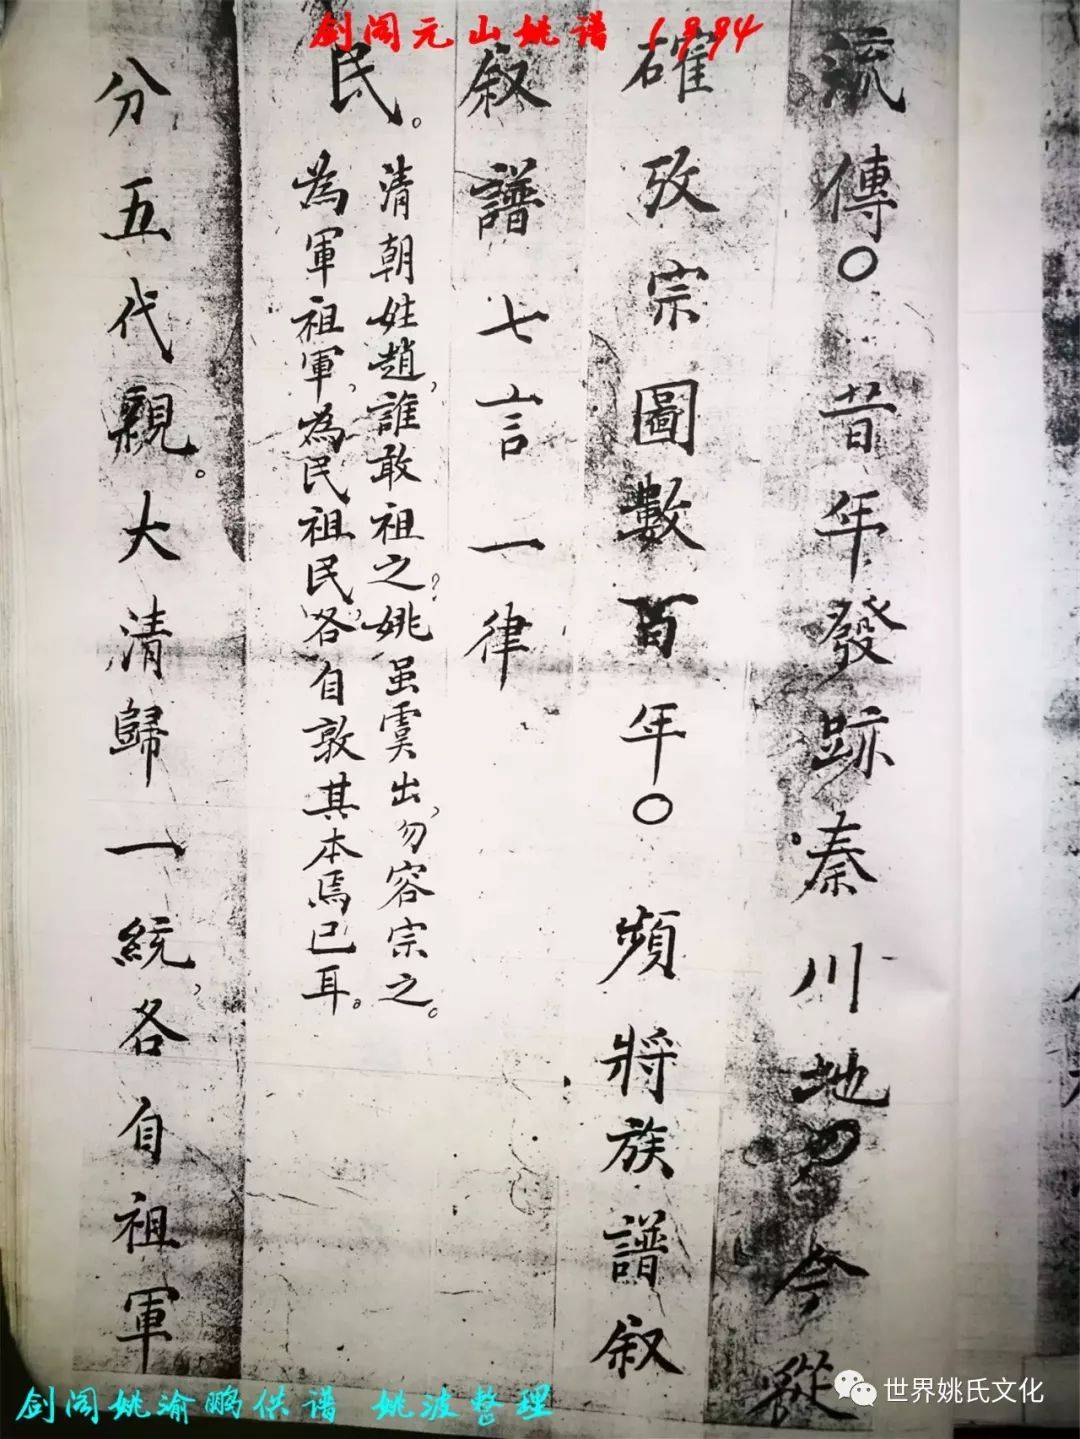 剑阁元山姚谱 1994
分五代親。大清歸一統，各自祖軍
民。
清朝姓趙，誰敢祖之？姚虽虞出，勿容宗之。
為軍祖軍，為民祖民，各自敦其本焉已耳。
叙譜七言一律
確攷宗圖數百年○頻將族譜叙
流傳○昔年發跡秦川地今從
剑阁姚渝鹏供谱 姚波整理
世界姚氏文化